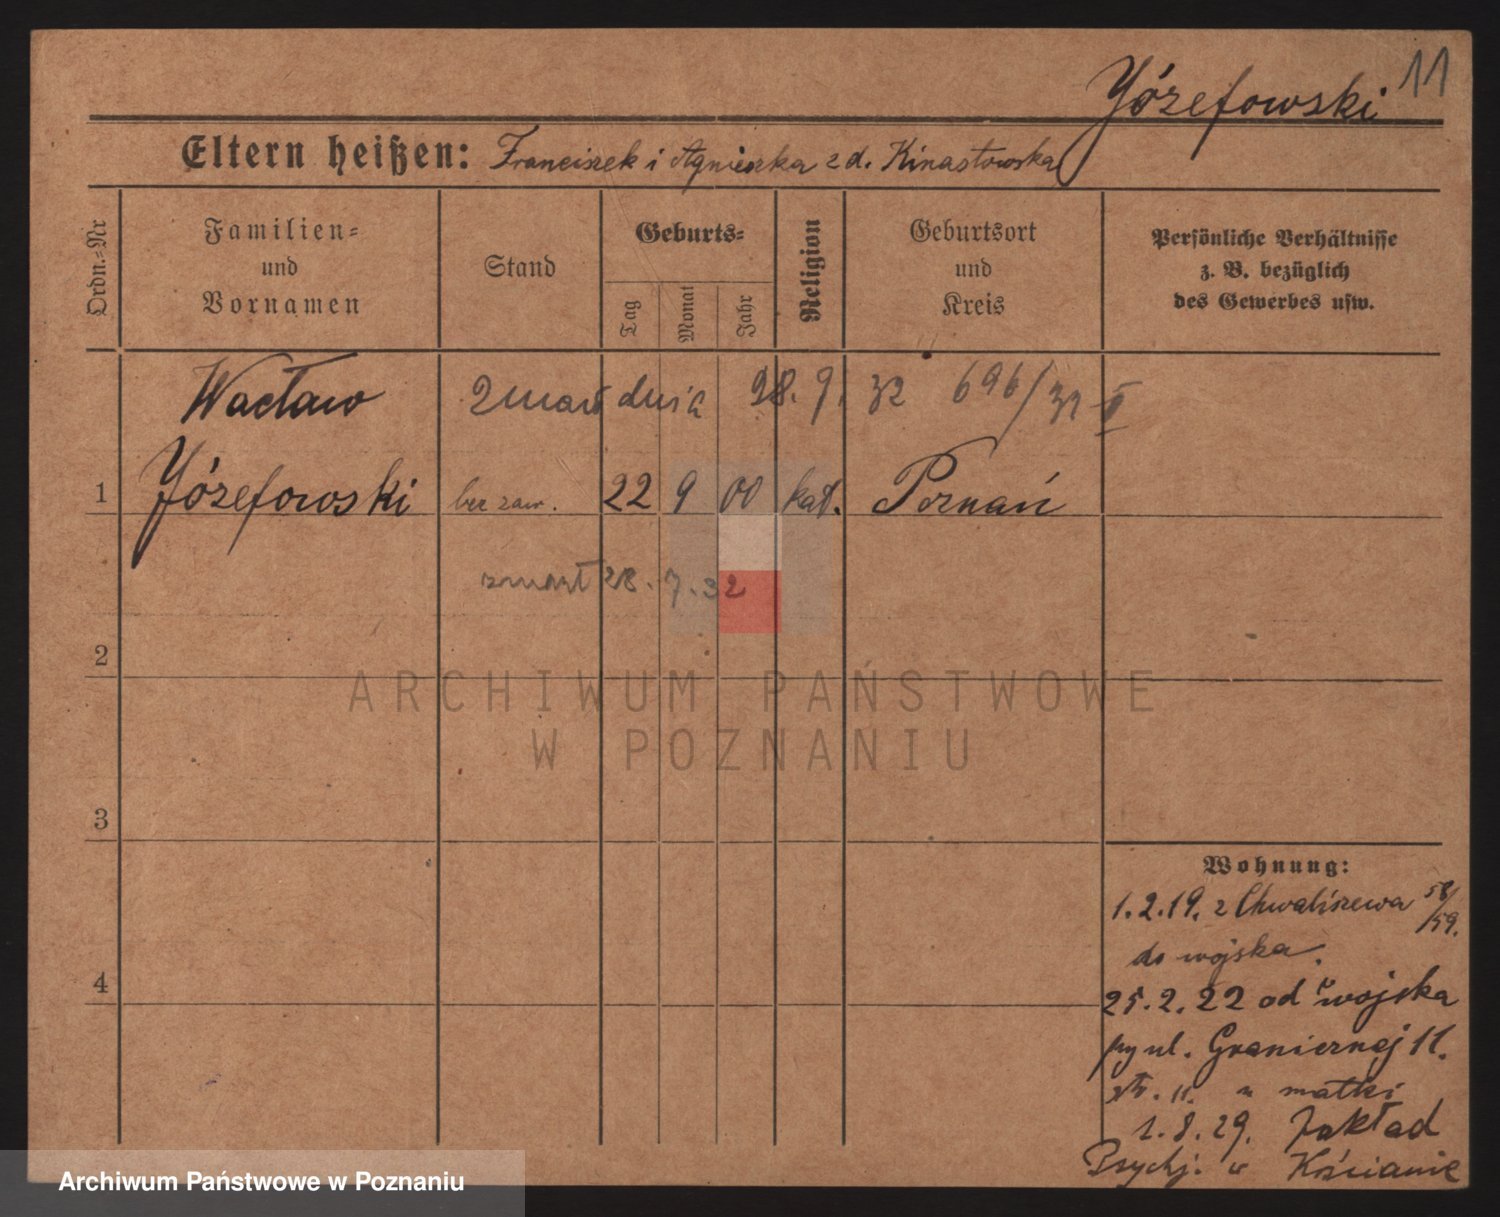 11
Józefowski
Eltern heißen: Franciszek i Agnieszka z d. Kinastowska
Ordn.-Nr
Familien-
und
Vornamen
Stand
Geburts-
Tag
Monat
Jahr
Religion
Geburtsort
und
Kreis
Persönliche Verhältnisse
z. B. bezüglich
des Gewerbes usw.
Wacław
zmarł dnia 28. 7. 32 696/32 II
1 Józefowski bez zaw. 22 9 00 kat. Poznań
zmarł 28. 7. 32
2
3
4
ARCHIWUM PAŃSTWOWE
W POZNANIU
Wohnung:
1.2.19. z Chwaliszewa 58/59.
do wojska.
25.2.22 od wojska
przy ul. Granicznej 11.
u matki
1.8.29. Zakład
Psychj. w Kościanie
Archiwum Państwowe w Poznaniu